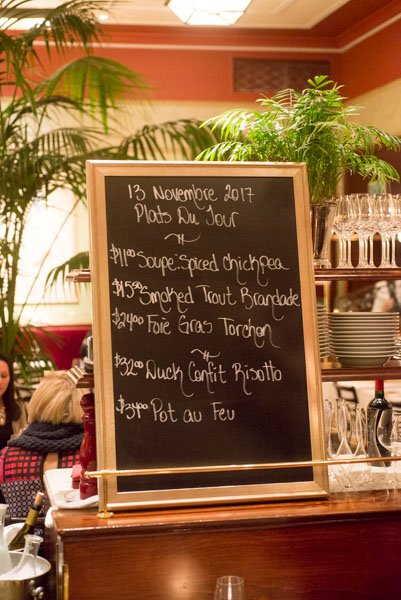 13 Novembre 2017
Plats Du Jour
$11.00 Soupe: Spiced Chickpea
$15.50 Smoked Trout Brandade
$24.00 Foie Gras Torchon
$32.00 Duck Confit Risotto
$34.00 Pot au Feu